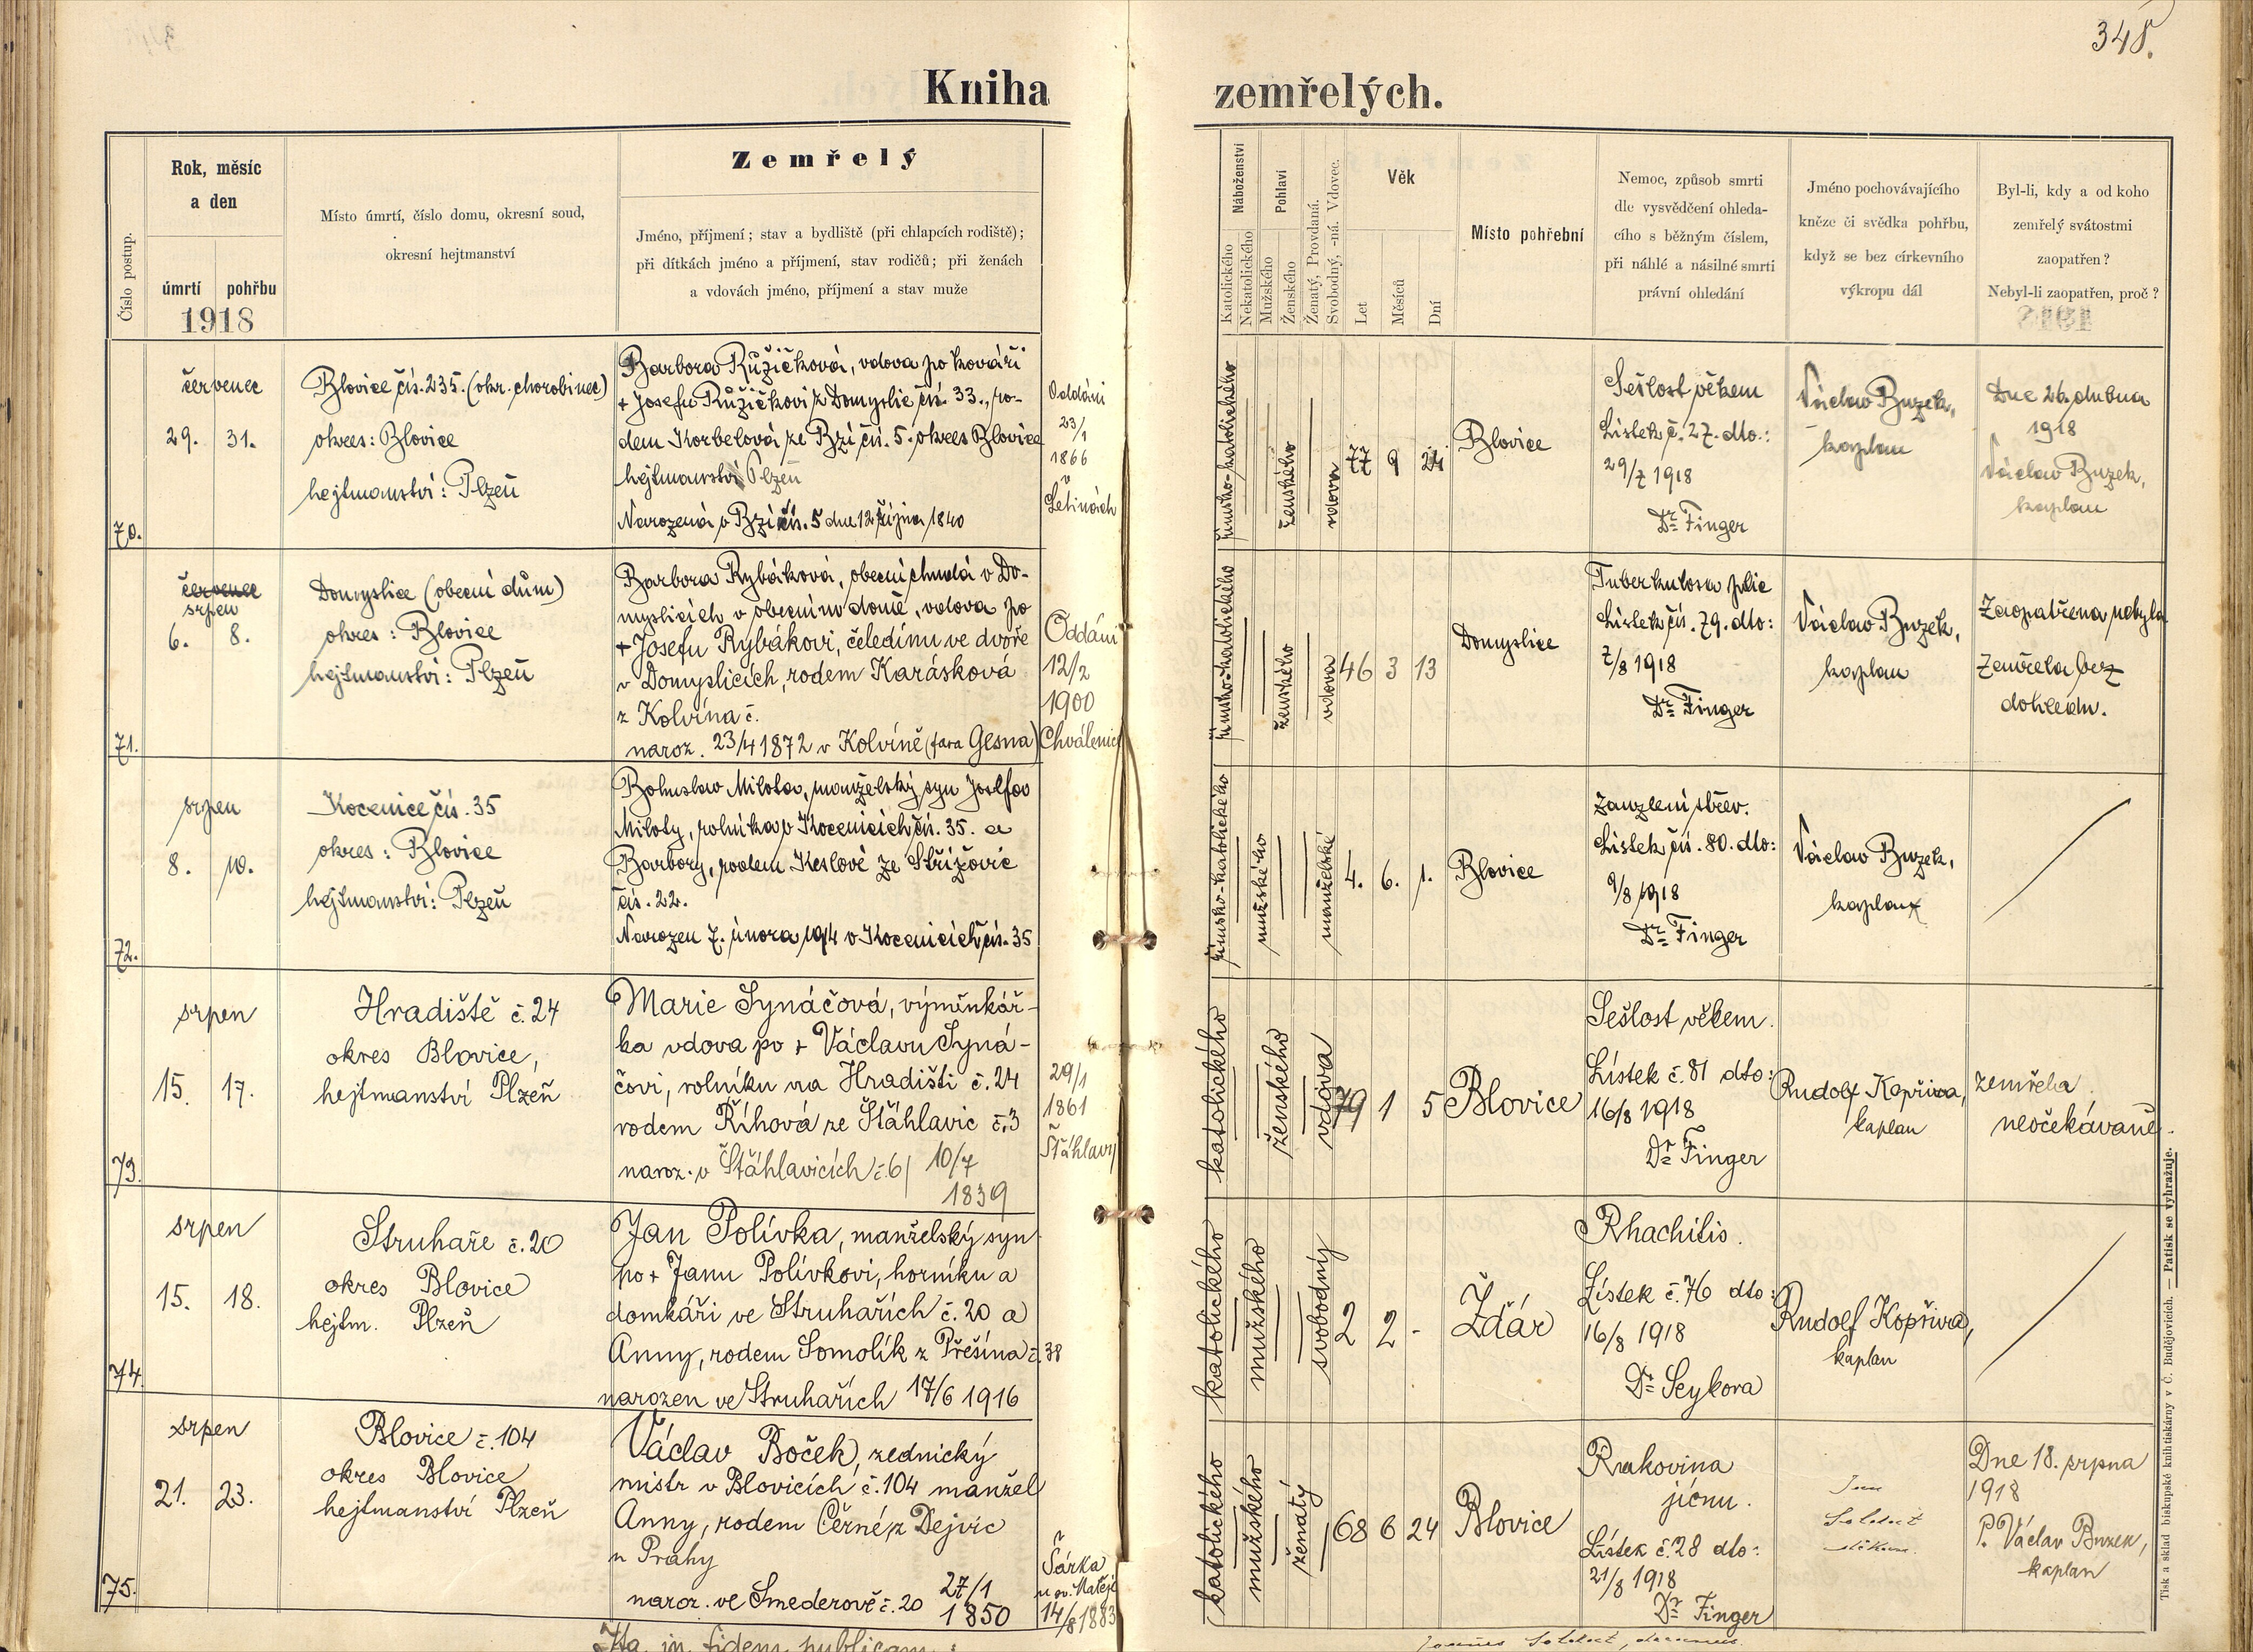 348.
Kniha zemřelých.
Číslo postup.
Rok, měsíc
a den
úmrtí pohřbu
1918
Místo úmrtí, číslo domu, okresní soud,
okresní hejtmanství
Zemřelý
Jméno, příjmení; stav a bydliště (při chlapcích rodiště);
při dítkách jméno a příjmení, stav rodičů; při ženách
a vdovách jméno, příjmení a stav muže
Náboženství
Katolického
Nekatolického
Pohlaví
Mužského
Ženského
Ženatý, Provdaná.
Svobodný, -ná. Vdovec.
Věk
Let
Měsíců
Dní
Místo pohřební
Nemoc, způsob smrti
dle vysvědčení ohleda-
cího s běžným číslem,
při náhlé a násilné smrti
právní ohledání
Jméno pochovávajícího
kněze či svědka pohřbu,
když se bez církevního
výkropu dál
Byl-li, kdy a od koho
zemřelý svátostmi
zaopatřen?
Nebyl-li zaopatřen, proč?
70.
červenec
29. 31.
Blovice čís. 235. (okr. chorobinec)
okres: Blovice
hejtmanství: Plzeň
Barbora Růžičková, vdova po kováři
+ Josefu Růžičkovi z Domyslic čís. 33., ro-
dem Korbelová ze Bzí čís. 5. okres Blovice
hejtmanství Plzeň
Narozená v Bzí čís. 5 dne 12. října 1840
Oddáni
23/1
1866
v
Letinách
římsko-katolického
ženského
vdova
77 9 24
Blovice
Sešlost věkem
Lístek č. 27. dto.:
29/7 1918
Dr. Finger
Václav Buzek,
kaplan
Dne 26. dubna
1918
Václav Buzek,
kaplan
71.
červenec
srpen
6. 8.
Domyslice (obecní dům)
okres: Blovice
hejtmanství: Plzeň
Barbora Rybáková, obecní chudá v Do-
myslicích v obecním domě, vdova po
+ Josefu Rybákovi, čeledínu ve dvoře
v Domyslicích, rodem Karásková
z Kolvína č.
naroz. 23/4 1872 v Kolvíně (fara Gesna)
Oddáni
12/2
1900
Chválenic
římsko-katolického
ženského
vdova
46 3 13
Domyslice
Tuberkulosa plic
Lístek čís. 79. dto:
7/8 1918
Dr. Finger
Václav Buzek,
kaplan
Zaopatřena nebyla
Zemřela bez
dohledu.
72.
srpen
8. 10.
Kocenice čís. 35
okres: Blovice
hejtmanství: Plzeň
Bohuslav Milota, manželský syn Josefa
Miloty, rolníka v Kocenicích čís. 35. a
Barbory, rodem Keslové ze Střížovic
čís. 22.
Narozen 7. února 1914 v Kocenicích čís. 35
římsko-katolického
mužského
manželské
4. 6. 1.
Blovice
Zauzlení střev.
Lístek čís. 80. dto:
9/8 1918
Dr. Finger
Václav Buzek,
kaplan
73.
srpen
15. 17.
Hradiště č. 24
okres Blovice,
hejtmanství Plzeň
Marie Synáčová, výměnkář-
ka vdova po + Václavu Syná-
čovi, rolníku na Hradišti č. 24
rodem Říhová ze Štáhlavic č. 3
naroz. v Štáhlavicích č. 6/ 10/7
1839
29/1
1861
Štáhlavy
katolického
ženského
vdova
79 1 5
Blovice
Sešlost věkem.
Lístek č. 81 dto:
16/8 1918
Dr. Finger
Rudolf Kopřiva,
kaplan
zemřela
neočekávaně.
74.
srpen
15. 18.
Struhaře č. 20
okres Blovice
hejtm. Plzeň
Jan Polívka, manželský syn
po + Janu Polívkovi, horníku a
domkáři ve Struhařích č. 20 a
Anny, rodem Somolík z Přešína č. 38
narozen ve Struhařích 17/6 1916
katolického
mužského
svobodný
2 2 -
Žďár
Rhachitis.
Lístek č. 76 dto:
16/8 1918
Dr. Seykora
Rudolf Kopřiva,
kaplan
75.
srpen
21. 23.
Blovice č. 104
okres Blovice
hejtmanství Plzeň
Václav Boček, zednický
mistr v Blovicích č. 104 manžel
Anny, rodem Černé, z Dejvic
u Prahy
naroz. ve Smederově č. 20 27/1
1850
Šárka
u sv. Matěje
14/8 1883
katolického
mužského
ženatý
68 6 24
Blovice
Rakovina
jícnu.
Lístek č. 28 dto:
21/8 1918
Dr. Finger
Jan
Soldát
děkan.
Dne 18. srpna
1918
P. Václav Buzek,
kaplan
Ita in fidem publicam:
Joannes Soldát, decanus.
Tisk a sklad biskupské knihtiskárny v Č. Budějovicích. — Patisk se vyhražuje.